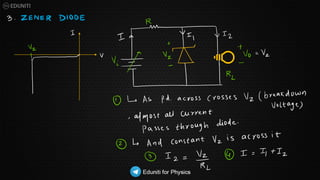 EDUNITI
3. ZENER DIODE
I
Vz
V
R
I
I1
I2
Vi
Vz
+
Vo = Vz
-
RL
① ↳ As pd across crosses Vz (breakdown voltage)
, almost all current
passes through diode.
② ↳ And constant Vz is across it
③ I2 = Vz / RL
④ I = I1 + I2
Eduniti for Physics